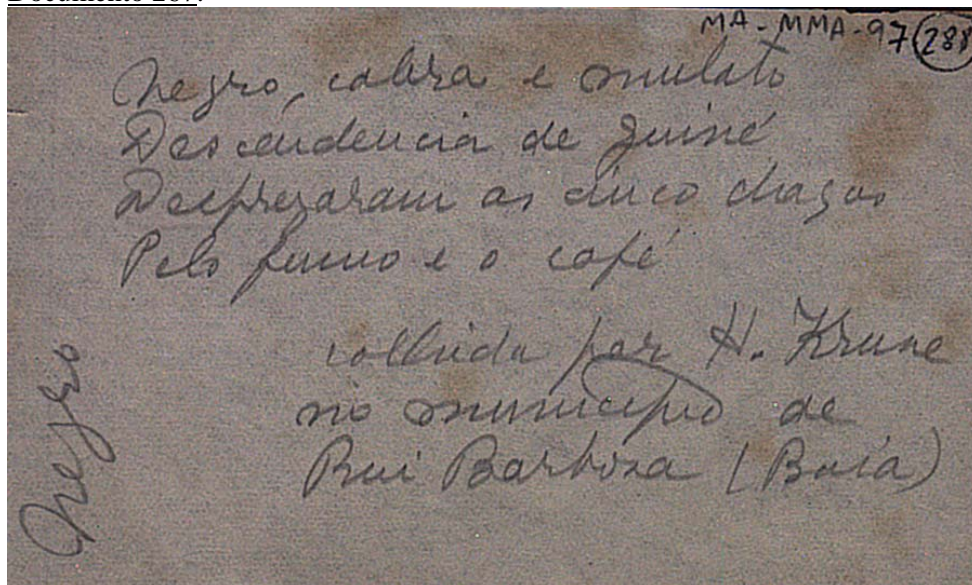 Documento 287.
MA-MMA-97 (288
Negro, cabra e mulato
Descendencia de Guiné
Desprezaram as cinco chagas
Pelo fumo e o café
colhida por H. Krune
no municipio de
Rui Barbosa (Baía)
Negro